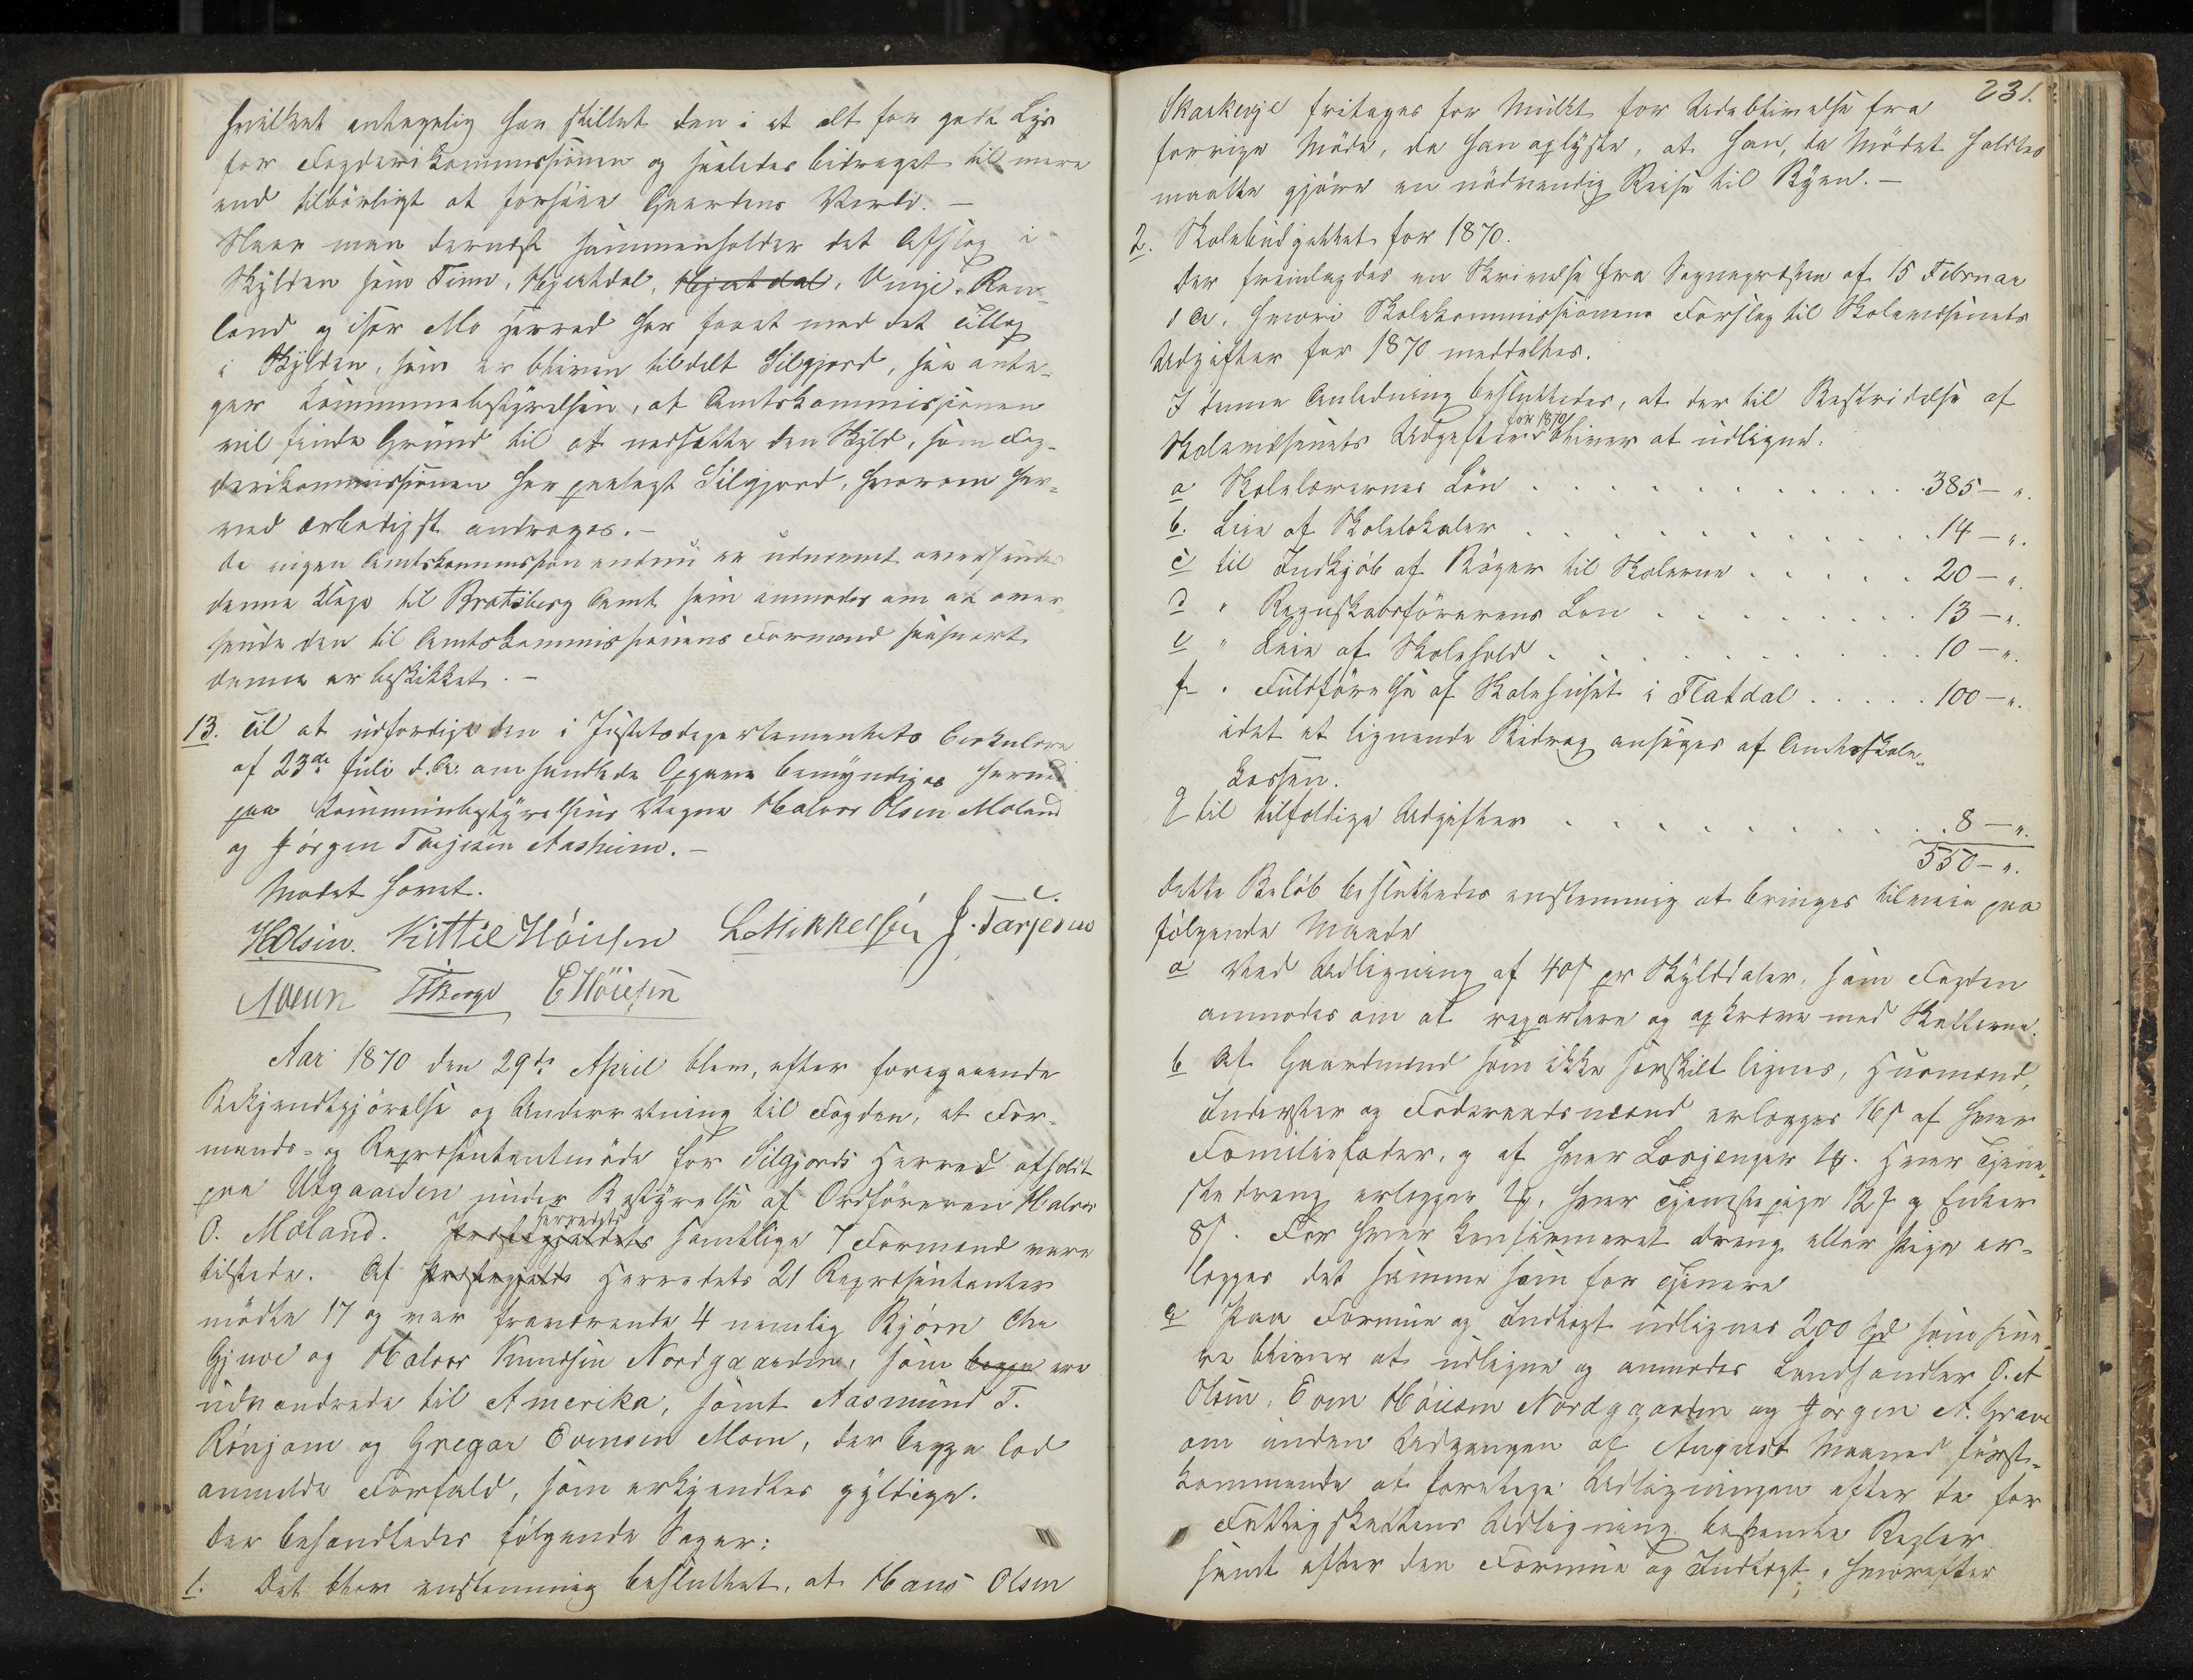 hvilket antagelig har stillet den i et alt for godt Lys
for Fogderikommissionen og saaledes bidraget til mere
end tilbørligt at forhøie Gaardens Verdi. –
Naar man dernæst sammenholder det Afslag i
Skylden som Tinn, Hjertdal, Hjertdal, Vinje, Rau-
land og især Mo Herred har faaet med det Tillæg
i Skylden, som er bleven tildelt Silgjord, saa anta-
ger Kommunebestyrelsen, at Amtskommissionen
vil finde Grund til at nedsætte den Skyld, som Fog-
derikommissionen har paalagt Silgjord, hvorom her-
ved ærbødigst andrages. –
Da ingen Amtskommission endnu er udnævnt oversendes
denne Klage til Bratsberg Amt som anmodes om at over-
sende den til Amtskommissionens Formand saasnart
denne er beskikket. –
13. Til at udfærdige den i Justitsdepartementets Cirkulære
af 23de Juli d.A. omhandlede Opgave bemyndiges herved
paa Kommunebestyrelsens Vegne Halvor Olsen Moland
og Jørgen Tarjesen Aasheim. –
Mødet hævet.
HOlsen. Kittil Høiesen L Mikkelsen J. Tarjesen
E Høiesen
Aar 1870 den 29de April blev, efter foregaaende
Bekjendtgjørelse og Underretning til Fogden, et For-
mands- og Repræsentantmøde for Silgjords Herred afholdt
paa Utgaarden under Bestyrelse af Ordføreren Halvor
O. Moland. Præstegjeldets Herredets samtlige 7 Formænd vare
tilstede. Af Præstegjelds Herredets 21 Repræsentanter
mødte 17 og var fraværende 4 nemlig Bjørn
Gjuve og Halvor Knudsen Nordgaarden, som begge ere
udvandrede til Amerika, samt Aasmund T.
Rønjom og Gregar Evensen Moen, der begge lod
anmelde Forfald, som erkjendtes gyldige.
Der behandledes følgende Sager:
1. Det blev enstemmig besluttet, at Hans Olsen
231.
Skarkeqje fritages for Mulkt for Udeblivelse fra
forrige Møde, da han oplyste, at han, da Mødet holdtes
maatte gjøre en nødvendig Reise til Byen. –
2. Skolebudgettet for 1870.
Der fremlagdes en Skrivelse fra Sognepræsten af 15 Februar
d A. hvori Skolekommissionens Forslag til Skolevæsenets
Udgifter for 1870 meddeltes.
I denne Anledning besluttedes, at der til Bestridelse af
Skolevæsenets Udgifter for 1870 bliver at udligne:
a Skolelærernes Løn . . . . . . . . . . . 385 – „.
b. Leie af Skolelokaler . . . . . . . . . . 14 – „.
c til Indkjøb af Bøger til Skolerne . . . . . 20 – „.
d „ Regnskabsførerens Løn . . . . . . . . 13 – „.
e „ Leie af Skolehold . . . . . . . . . . 10 – „.
f „ Fuldførelse af Skolehuset i Flatdal . . . . . 100 – „.
idet et lignende Bidrag ansøges af Amtsskole-
kassen.
g til tilfældige Udgifter . . . . . . . . . . 8 – „.
550 – „.
Dette Beløb besluttedes enstemmig at bringes tilveie paa
følgende Maade
a Ved Udligning af 40 ß pr Skylddaler, som Fogden
anmodes om at repartere og opkræve med Skatterne.
b Af Gaardmænd som ikke særskilt lignes, Husmænd,
Inderster og Føderaadsmænd erlægges 16 ß af hver
Familiefader, og af hver Løsjænger . Hver Tjene-
stedreng erlægger , hver Tjenestepige 12 ß og Enker
8 ß. For hver konfirmeret Dreng eller Pige er-
lægges det samme som for Tjenere
c Paa Formue og Indtægt udlignes 200 Spd som sene-
re bliver at udligne og anmodes Landhandler O. A
Olsen, Even Høiesen Nordgaarden og Jørgen A. Grave
om inden Udgangen af August Maaned først-
kommende at foretage Udligningen efter de for
Fattigskattens Udligning bestemte Regler
samt efter den Formue og Indtægt, hvorefter